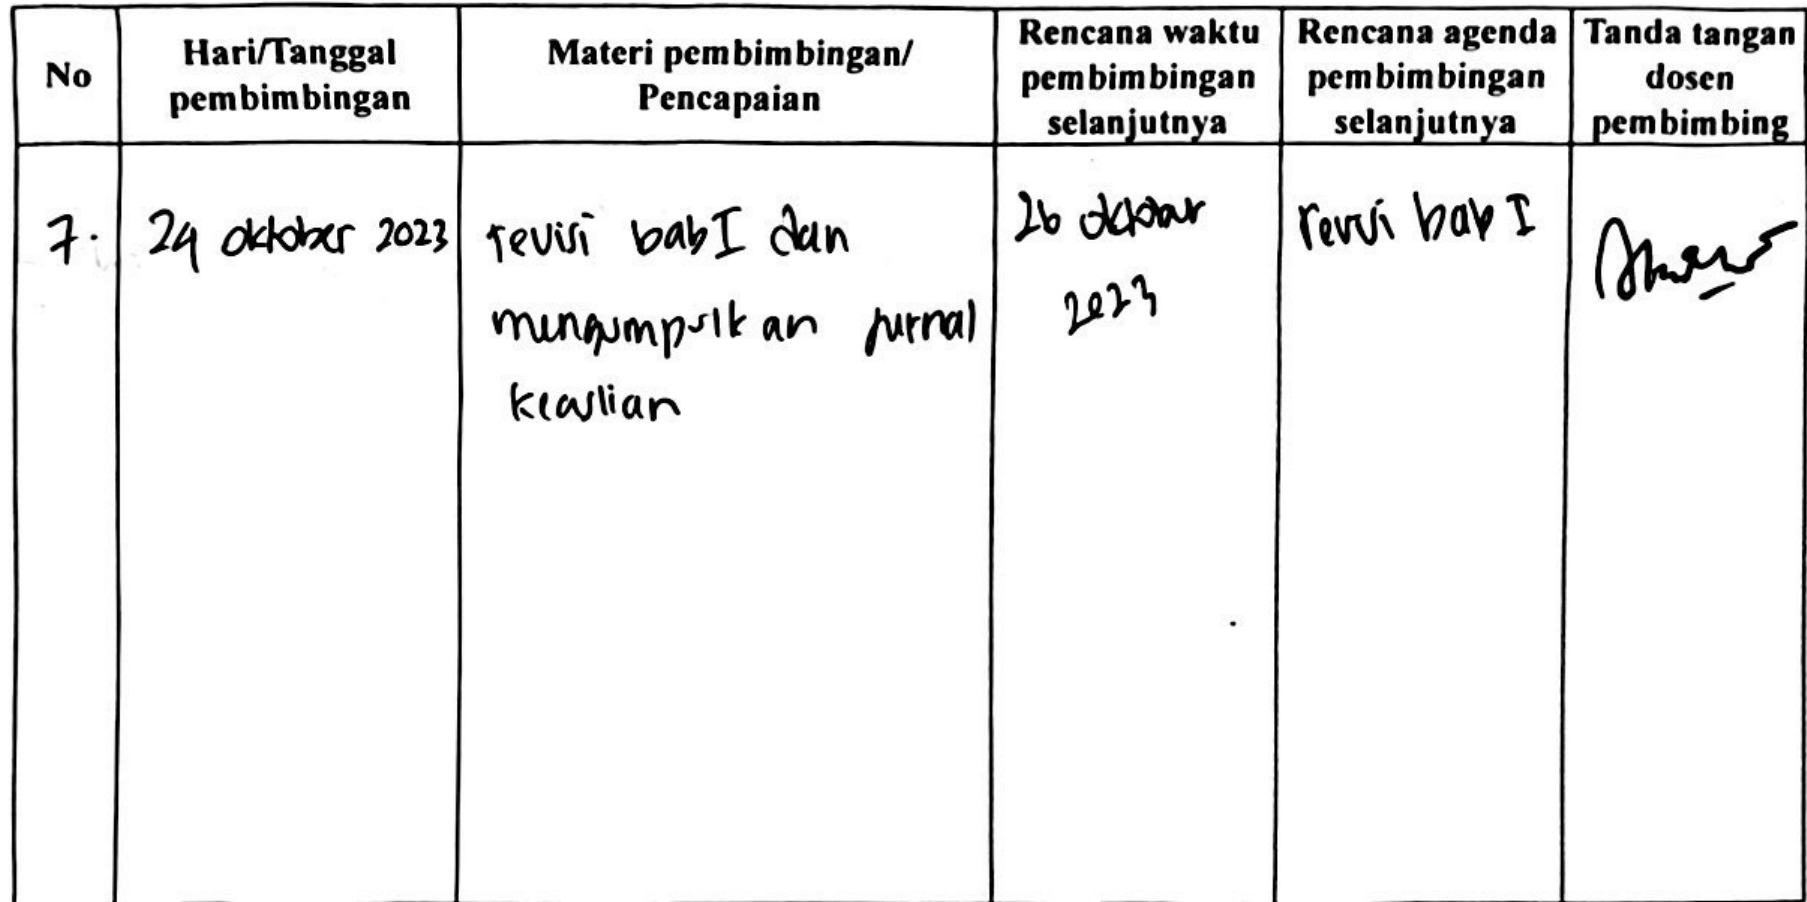 No
Hari/Tanggal
pembimbingan
Materi pembimbingan/
Pencapaian
Rencana waktu
pembimbingan
selanjutnya
Rencana agenda
pembimbingan
selanjutnya
Tanda tangan
dosen
pembimbing
7.
24 oktober 2023
revisi bab I dan
mengumpulkan jurnal
keaslian
26 oktober
2023
revisi bab I